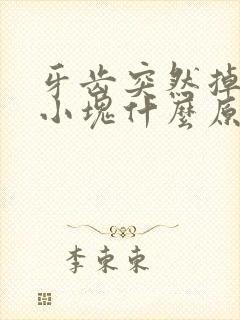 牙齿突然掉
小塊什麼原
李東東